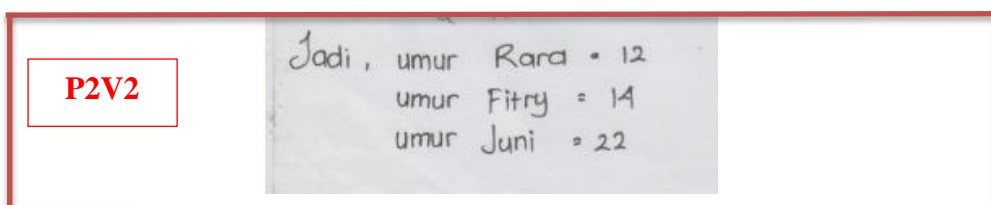 P2V2
Jadi, umur Rara = 12
umur Fitry = 14
umur Juni = 22